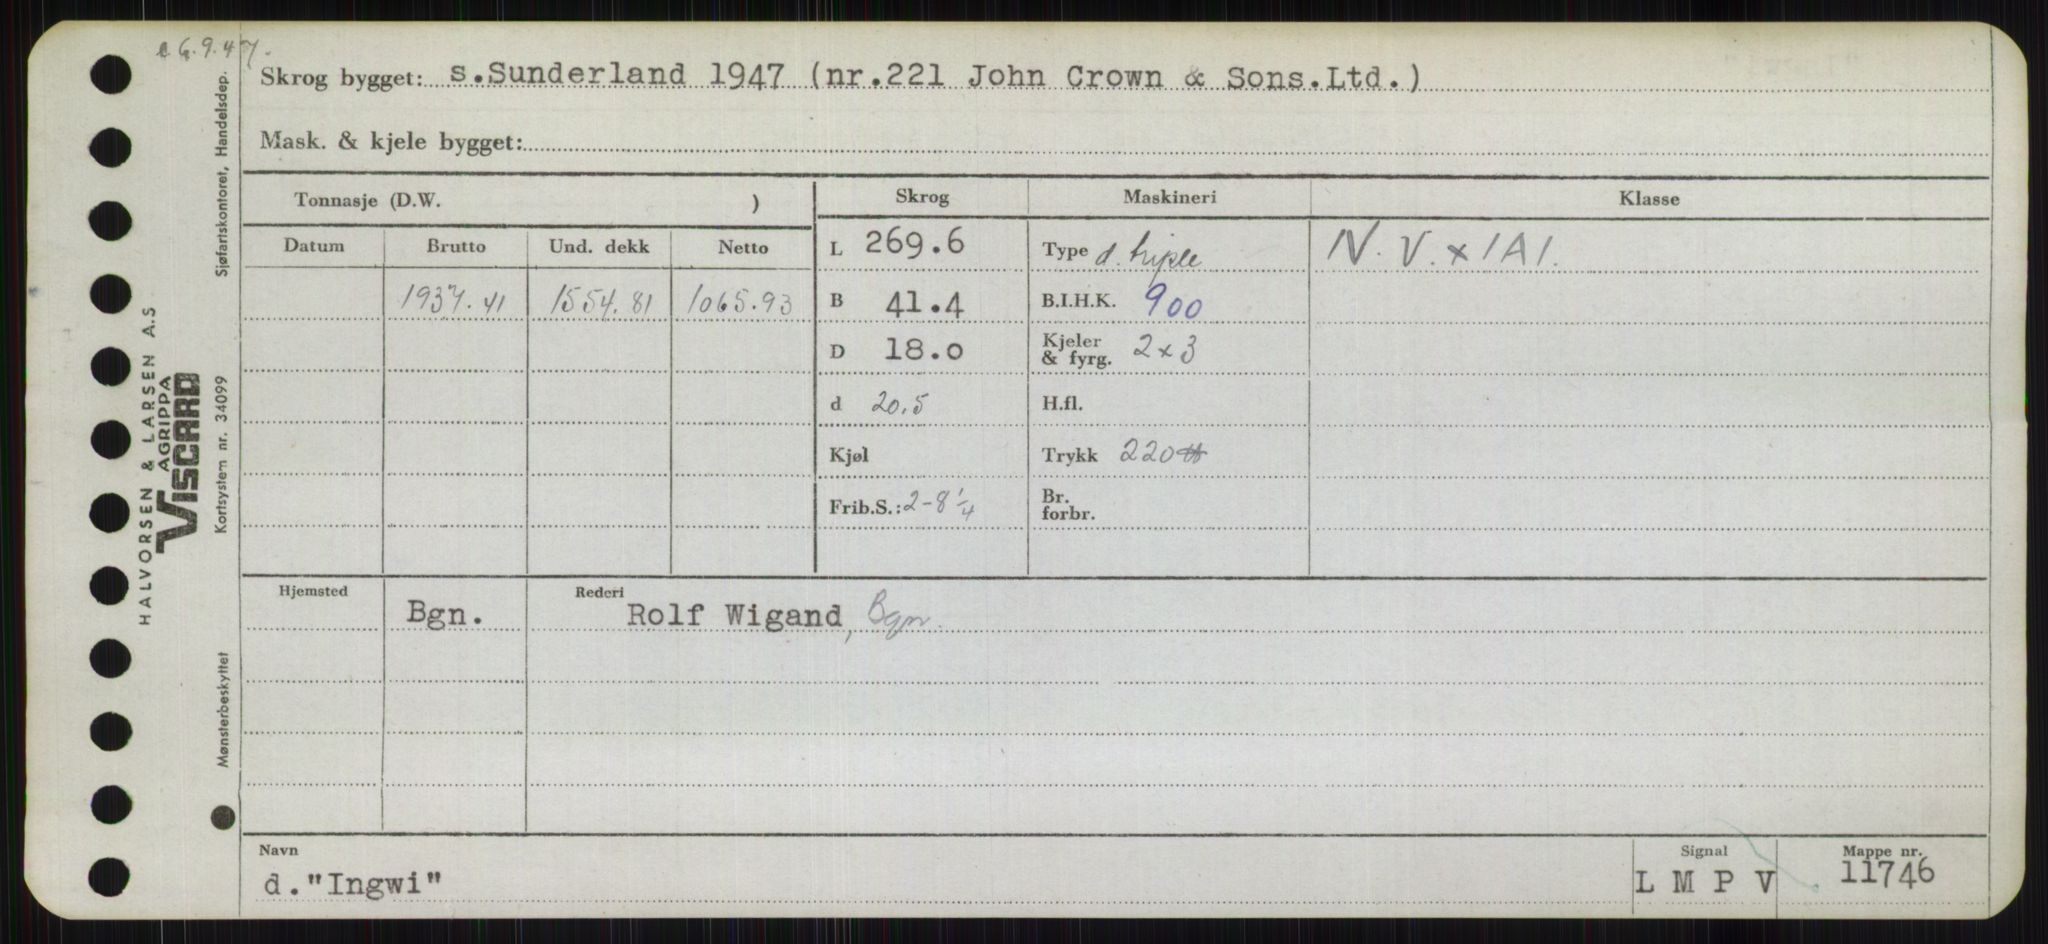 e 6.9.47.
Skrog bygget: s.Sunderland 1947 (nr.221 John Crown & Sons.Ltd.)
Mask. & kjele bygget:
Tonnasje (D.W. )
Skrog Maskineri Klasse
Datum Brutto Und. dekk Netto
L 269.6 Type d. triple N. V. x 1A1.
1937.41 1554.81 1065.93
B 41.4 B.I.H.K. 900
D 18.0 Kjeler & fyrg. 2x3
d 20.5 H.fl.
Kjøl Trykk 220 #
Frib.S.: 2-8 1/4 Br. forbr.
Hjemsted Rederi
Bgn. Rolf Wigand, Bgn.
Navn Signal Mappe nr.
d."Ingwi" L M P V 11746
HALVORSEN & LARSEN A.S
AGRIPPA
VISCARD
Sjøfartskontoret, Handelsdep.
Kortsystem nr. 34099
Mønsterbeskyttet